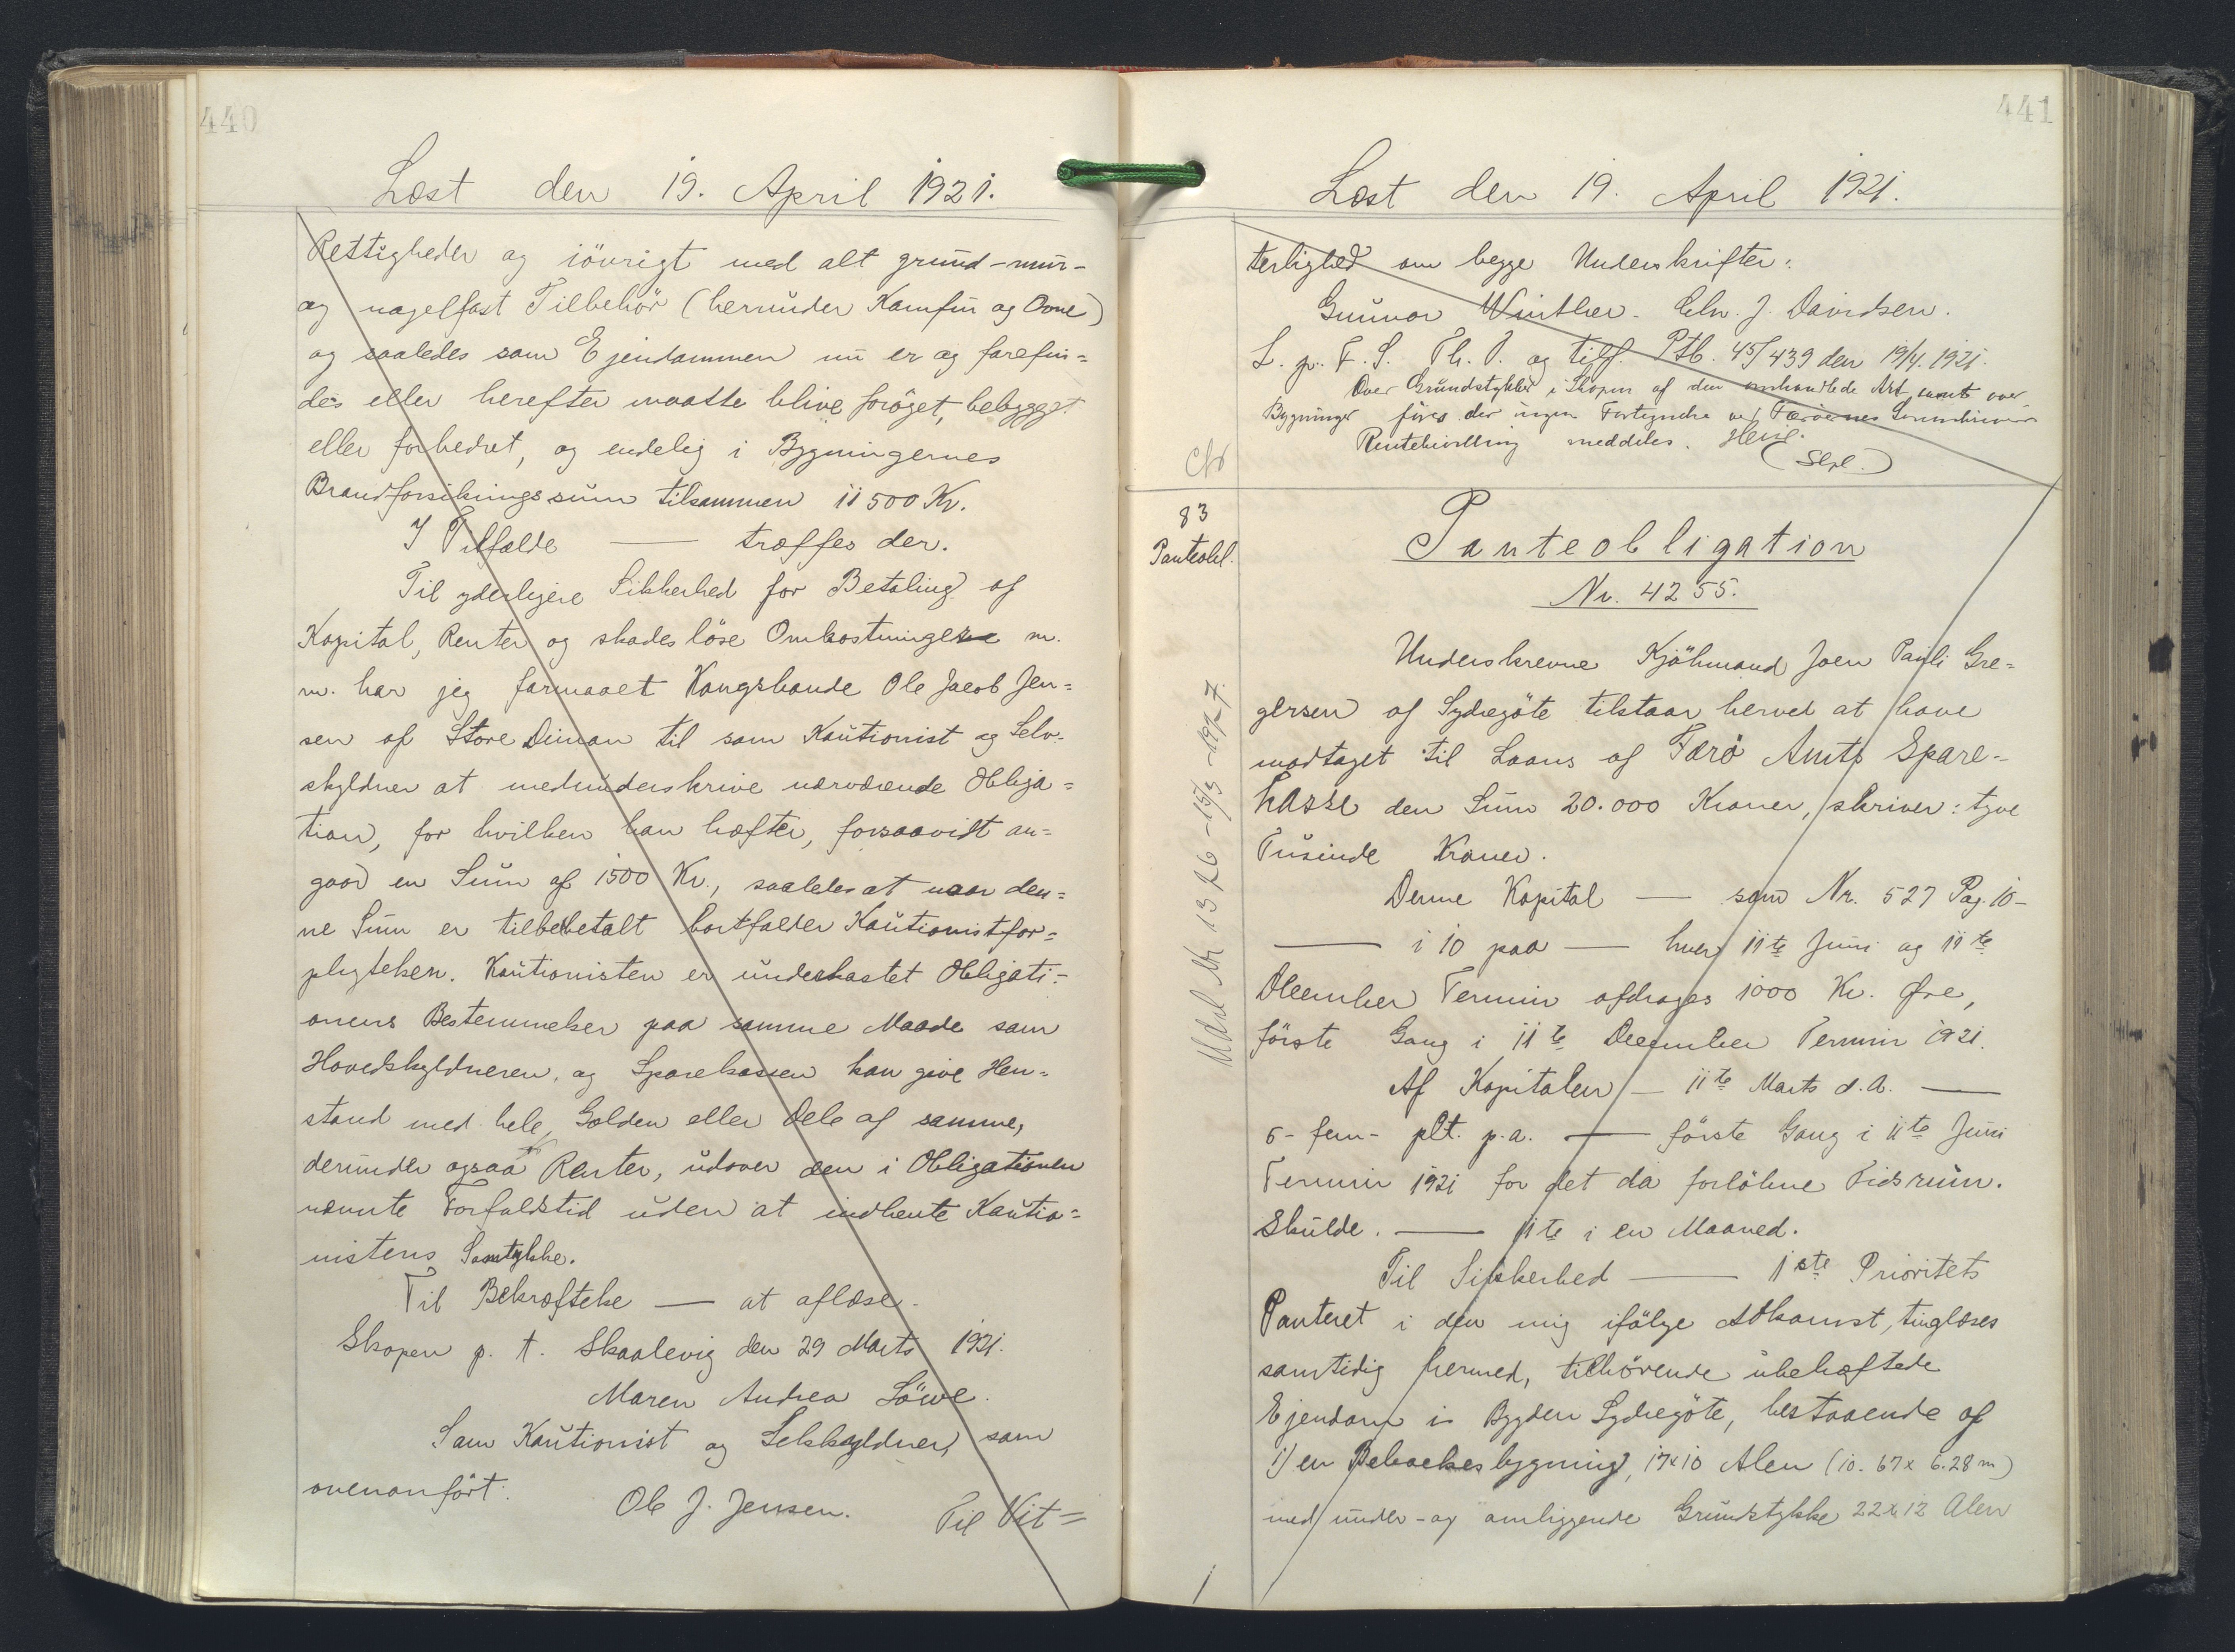 440
Læst den 19. April 1921.
Rettigheder og iövrigt med alt grund-mur-
og nagelfast Tilbehör (herunder Komfur og Ovne)
og saaledes som Ejendommen nu er og forefin=
des eller herefter maatte blive foröget, bebygget
eller forbedret, og endelig i Bygningernes
Brandforsikringssum tilsammen 11500 Kr.
I Tilfælde — træffes der.
Til yderligere Sikkerhed for Betaling af
Kapital, Renter og skadeslöse Omkostninger m.
m. har jeg formaaet Kongsbonde Ole Jacob Jen=
sen af Store Dimon til som Kautionist og Selv-
skyldner at medunderskrive nærværende Obliga=
tion, for hvilken han hæfter, forsaavidt an=
gaar en Sum af 1500 Kr., saaledes at naar den=
ne Sum er tilbebetalt bortfalder Kautionistfor=
pligtelsen. Kautionisten er underkastet Obligati-
onens Bestemmelser paa samme Maade som
Hovedskyldneren, og Sparekassen kan give Hen=
stand med hele Gælden eller Dele af samme,
derunder ogsaa Renter, udover den i Obligationen
nævnte Forfaldstid uden at indhente Kautio=
nistens Samtykke.
Til Bekræftelse — at aflæse.
Skopen p. t. Skaalevig den 29 Marts 1921.
Maren Andrea Löwe.
Som Kautionist og Selvskyldner som
ovenanfört.
Ole J. Jensen. Til Vit=
441
Læst den 19. April 1921.
terlighed om begge Underskrifter:
Gunnar Winther. Chr. J. Davidsen.
L. p. F. S. Th. O. og tilf. Ptb. 45/439 den 19/4. 1921.
Over Grundstykker i Skopen af den omhandlede Art samt over
Bygninger föres der ingen Fortegnelse ved Færöernes Sorenskriveri
meddeles.
83
Panteobl.
Panteobligation
Nr. 4255.
Underskrevne Kjöbmand Joen Pauli Gre=
gersen af Sydregöte tilstaar herved at have
modtaget til Laans af Færø Amts Spare-
kasse den Sum 20.000 Kroner, skriver: tyve
Tusinde Kroner.
Denne Kapital — som Nr. 527 Pag. 10-
— i 10 paa — hver 11te Juni og 11te
December Termin afdrages 1000 Kr. Øre,
förste Gang i 11te December Termin 1921.
Af Kapitalen — 11te Marts d.A. —
5- fem- pCt. p.a. — förste Gang i 11te Juni
Termin 1921 for det da forlöbne Tidsrum.
Skulde. — 11te i en Maaned.
Til Sikkerhed — 1ste Prioritets
Panteret i den mig ifölge Adkomst, tinglæses
samtidig hermed, tilhörende ubehæftede
Ejendom i Bygden Sydregöte, bestaaende af
1) en Beboelsesbygning, 17x10 Alen (10.67x 6.28 m)
med under- og omliggende Grundstykke 22x12 Alen
Udsl. Nr 1326 - 15/3 - 1927.